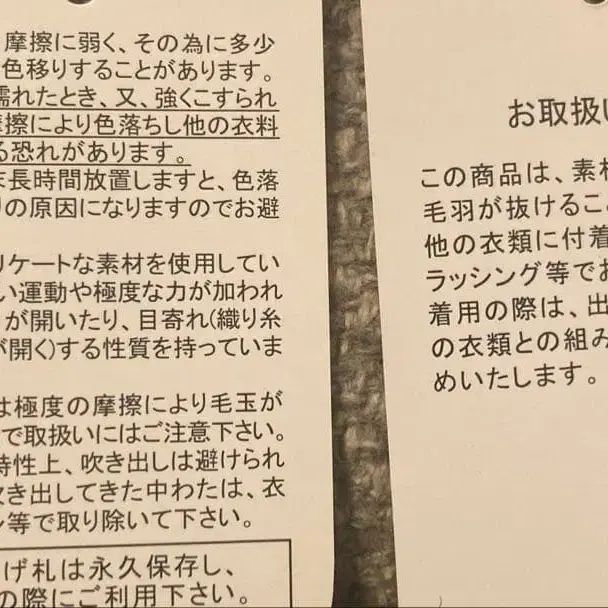 摩擦に弱く、その為に多少
色移りすることがあります。
濡れたとき、又、強くこすられ
摩擦により色落ちし他の衣料
る恐れがあります。
長時間放置しますと、色落
りの原因になりますのでお避
リケートな素材を使用してい
い運動や極度な力が加われ
が開いたり、目寄れ(織り糸
が開く)する性質を持っていま
は極度の摩擦により毛玉が
で取扱いにはご注意下さい。
特性上、吹き出しは避けられ
吹き出してきた中わたは、衣
等で取り除いて下さい。
げ札は永久保存し、
の際にご利用下さい。
お取扱い
この商品は、素材
毛羽が抜けるこ
他の衣類に付着
ラッシング等でお
着用の際は、出
の衣類との組み
めいたします。